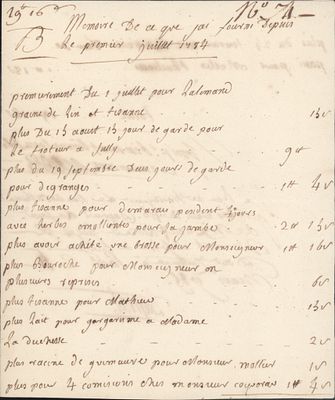 19# 16s
N° 4
B Memoire De ce que jai fourni Depuis
Le premier juillet 1784
premierement Du 1 juillet pour Lalemand
graine de Lin et tisanne 15s
plus Du 13 aout 13 jour de garde pour
Le froteur a Sully 9#
plus du 19 septembre Deux jours de garde
pour degranges 1# 4s
plus tisanne pour demarais pendent jours
avec herbes emolliente pour Sa jambe 2# 15s
plus avoir acheté une brosse pour Monseigneur 1# 16s
plus Bouroche pour Monseigneur en
plusieurs reprises 6s
plus tisanne pour Mathieu 15s
plus Lait pour gargarime a Madame
La duchesse 2s
plus racine de guimauve pour Monsieur 1s
plus pour 4 comisions ches monsieur 1# 4s